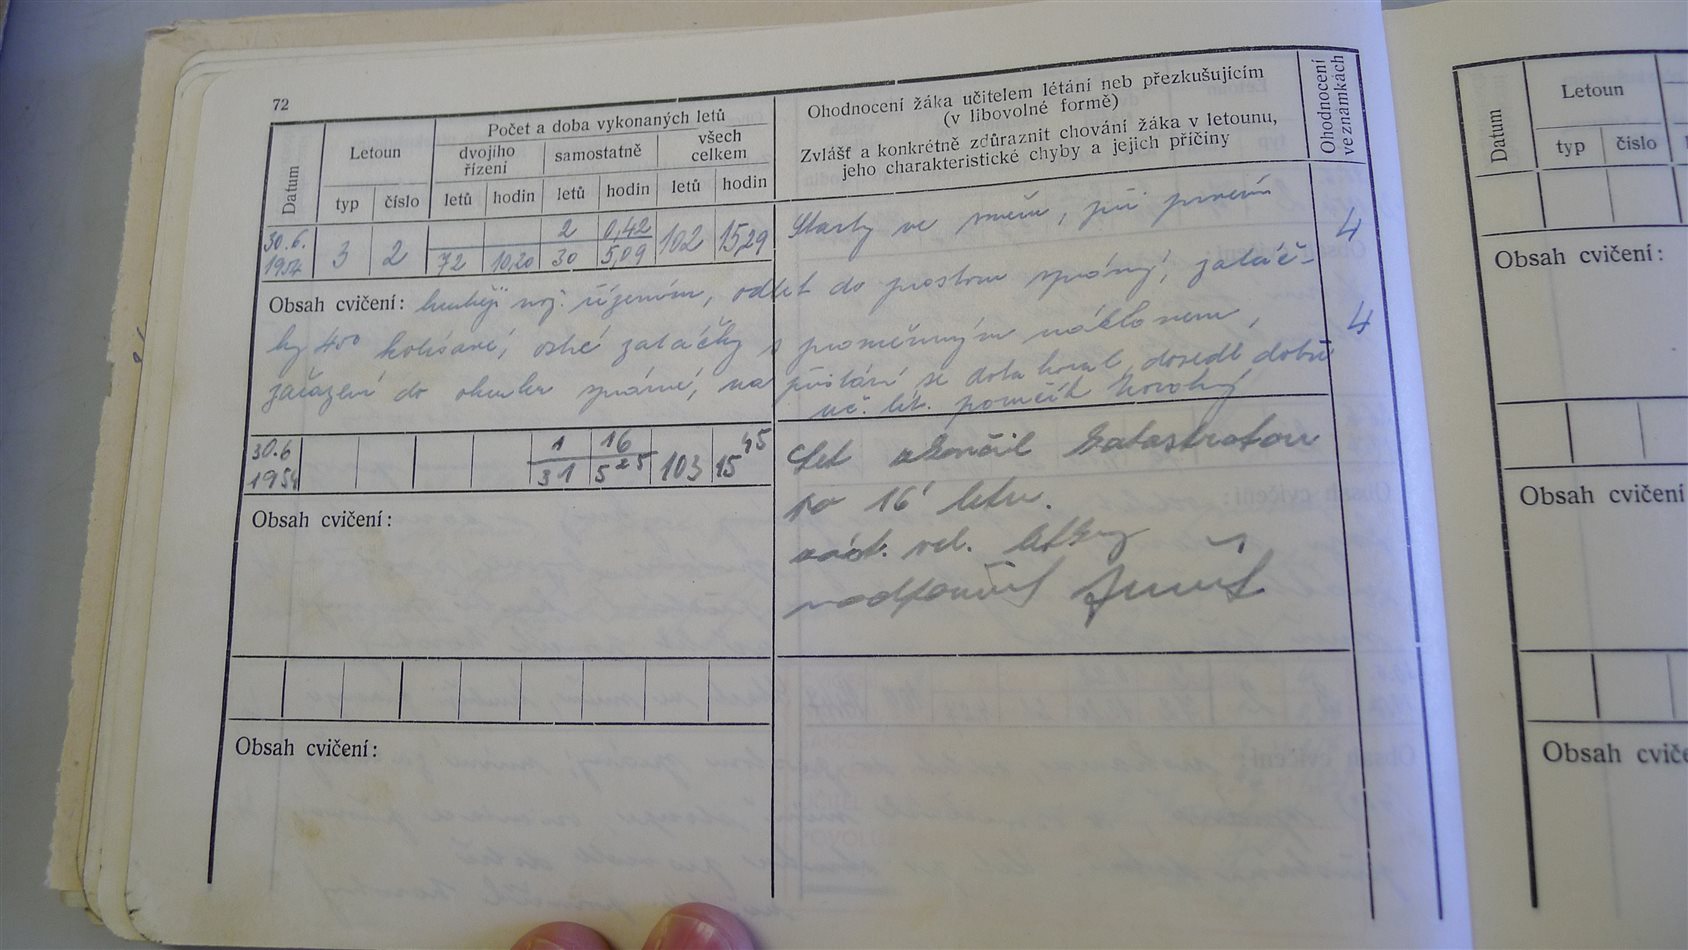 72
Datum
Letoun
Počet a doba vykonaných letů
dvojího řízení
samostatně
všech celkem
typ
číslo
letů
hodin
letů
hodin
letů
hodin
Ohodnocení žáka učitelem létání neb přezkušujícím
(v libovolné formě)
Zvlášť a konkrétně zdůraznit chování žáka v letounu,
jeho charakteristické chyby a jejich příčiny
Ohodnocení
ve známkách
2 0,42
30.6. 1954 3 2 72 10,20 30 5,09 102 15,29
Starty ve směru, při prvním 4
Obsah cvičení: hrubější řízením, odlet do prostoru správný, zatáč-
ky 400 kolísavé, ostré zatáčky s proměnným náklonem, 4
zařazení do okruhu správné, na přistání se dosedl dobře
uč. lét. poručík
30.6 1954
1 16
31 5 25 103 15 45
Let skončil katastrofou
po 16' letu.
zást. vel. letky
nadporučík
Obsah cvičení:
Obsah cvičení:
Datum
Letoun
typ
číslo
Obsah cvičení:
Obsah cvičení
Obsah cviče